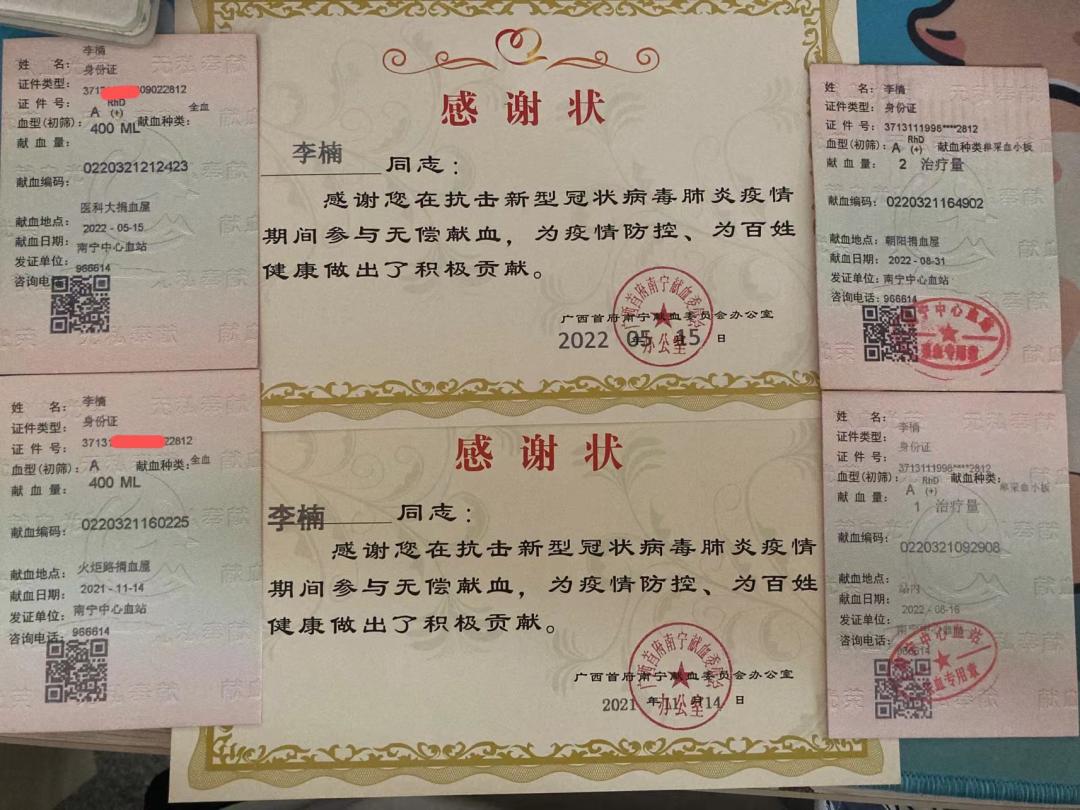 姓 名： 李楠
证件类型： 身份证
证 件 号： 3713 09022812
血型(初筛)： A RhD (+) 献血种类： 全血
献 血 量： 400 ML
献血编码： 0220321212423
献血地点： 医科大捐血屋
献血日期： 2022-05-15
发证单位： 南宁中心血站
咨询电 966614
感谢状
李楠 同志：
感谢您在抗击新型冠状病毒肺炎疫情
期间参与无偿献血，为疫情防控、为百姓
健康做出了积极贡献。
广西首府南宁献血委员会办公室
2022 年 05 月 15 日
广西首府南宁献血委员会
办公室
姓 名： 李楠
证件类型： 身份证
证 件 号： 3713111998****2812
血型(初筛)： A RhD (+) 献血种类 单采血小板
献 血 量： 2 治疗量
献血编码： 0220321164902
献血地点： 朝阳捐血屋
献血日期： 2022-08-31
发证单位： 南宁中心血站
咨询电话： 966614
南宁中心血站
献血专用章
姓 名： 李楠
证件类型： 身份证
证 件 号： 3713 22812
血型(初筛)： A 献血种类： 全血
献 血 量： 400 ML
献血编码： 0220321160225
献血地点： 火炬路捐血屋
献血日期： 2021-11-14
发证单位： 南宁中心血站
咨询电话： 966614
感谢状
李楠 同志：
感谢您在抗击新型冠状病毒肺炎疫情
期间参与无偿献血，为疫情防控、为百姓
健康做出了积极贡献。
广西首府南宁献血委员会办公室
2021 年 11 月 14 日
广西首府南宁献血委员会
办公室
姓 名： 李楠
证件类型： 身份证
证 件 号： 3713111998****2812
血型(初筛)： A RhD (+) 献血种类： 单采血小板
献 血 量： 1 治疗量
献血编码： 0220321092908
献血地点： 站内
献血日期： 2022-06-16
发证单位： 南宁中心血站
咨询电话： 966614
南宁中心血站
献血专用章